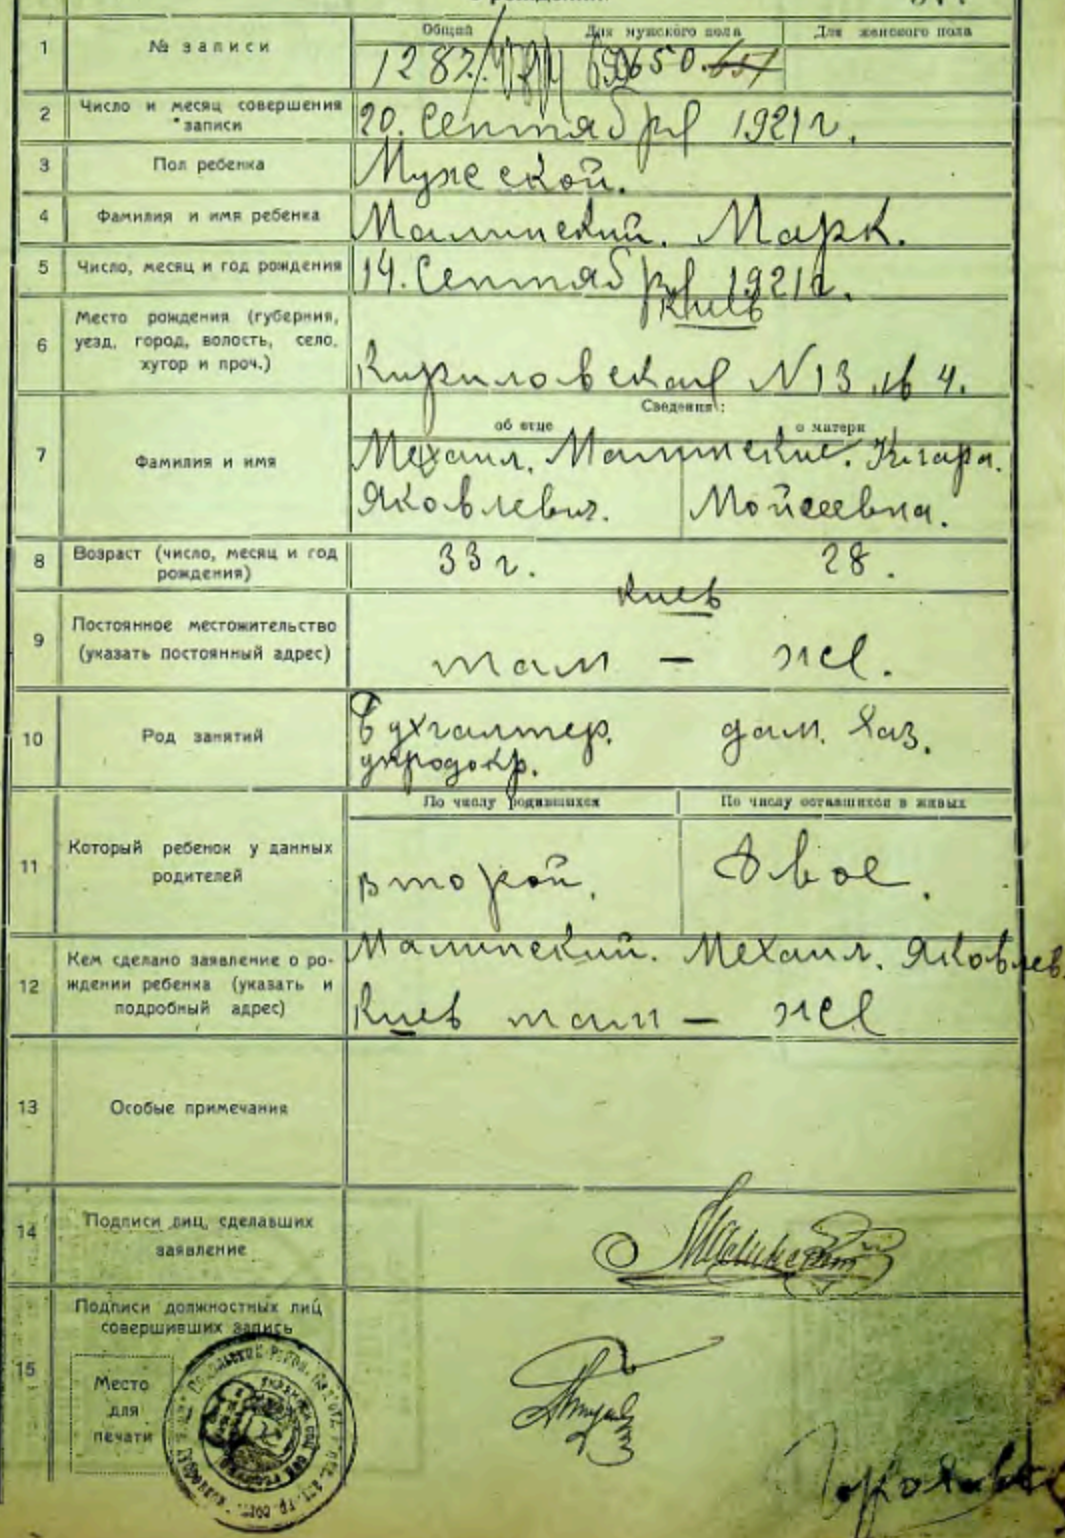 1
№ записи
Общий Для мужского пола Для женского пола
1287 650 651
2
Число и месяц совершения
записи
20. Сентября 1921 г.
3
Пол ребенка
Мужской.
4
Фамилия и имя ребенка
Малинский. Марк.
5
Число, месяц и год рождения
14. Сентября 1921 г.
6
Место рождения (губерния,
уезд, город, волость, село,
хутор и проч.)
Киев
Кириловская N 13 кв 4.
Сведения:
об отце о матери
7
Фамилия и имя
Мехаил. Малинские. Клара.
Яковлевич. Мойсеевна.
8
Возраст (число, месяц и год
рождения)
33 г. 28.
9
Постоянное местожительство
(указать постоянный адрес)
Киев
там — же.
10
Род занятий
Бухгалтер. дом. хаз.
упродокр.
По числу родившихся По числу оставшихся в живых
11
Который ребенок у данных
родителей
второй. Двое.
12
Кем сделано заявление о ро-
ждении ребенка (указать и
подробный адрес)
Малинский. Мехаил. Яковлев.
Киев там — же
13
Особые примечания
14
Подписи лиц, сделавших
заявление
15
Подписи должностных лиц
совершивших запись
Место
для
печати